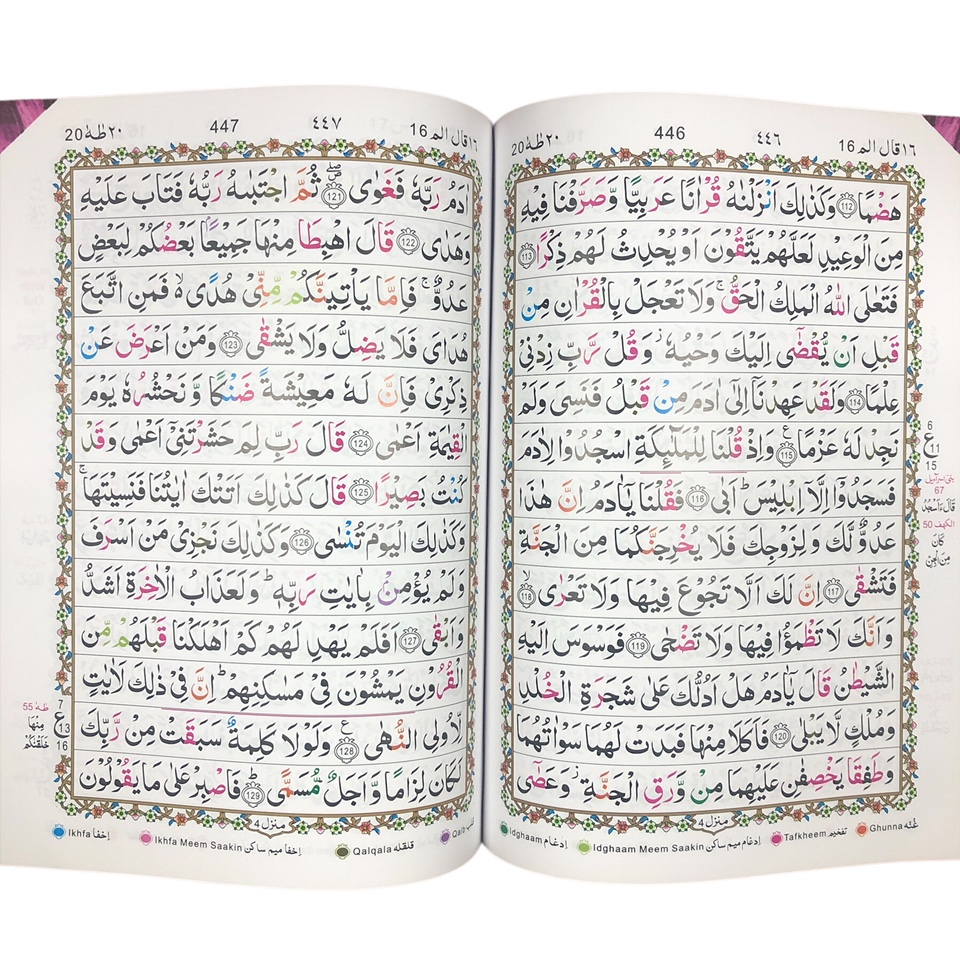 ١٦ قال الم 16 ٤٤٦ 446 ٢٠ طٰهٰ 20
هَضْمًا 112 وَكَذٰلِكَ اَنْزَلْنٰهُ قُرْاٰنًا عَرَبِيًّا وَّصَرَّفْنَا فِيْهِ
مِنَ الْوَعِيْدِ لَعَلَّهُمْ يَتَّقُوْنَ اَوْ يُحْدِثُ لَهُمْ ذِكْرًا 113
فَتَعٰلَى اللّٰهُ الْمَلِكُ الْحَقُّ ۚ وَلَا تَعْجَلْ بِالْقُرْاٰنِ مِنْ
قَبْلِ اَنْ يُّقْضٰۤى اِلَيْكَ وَحْيُهٗ ؗ وَقُلْ رَّبِّ زِدْنِيْ
عِلْمًا 114 وَلَقَدْ عَهِدْنَاۤ اِلٰۤى اٰدَمَ مِنْ قَبْلُ فَنَسِيَ وَلَمْ
نَجِدْ لَهٗ عَزْمًا 115 ع وَاِذْ قُلْنَا لِلْمَلٰٓئِكَةِ اسْجُدُوْا لِاٰدَمَ
فَسَجَدُوْۤا اِلَّاۤ اِبْلِيْسَ ؕ اَبٰى 116 فَقُلْنَا يٰۤاٰدَمُ اِنَّ هٰذَا
عَدُوٌّ لَّكَ وَلِزَوْجِكَ فَلَا يُخْرِجَنَّكُمَا مِنَ الْجَنَّةِ
فَتَشْقٰى 117 اِنَّ لَكَ اَلَّا تَجُوْعَ فِيْهَا وَلَا تَعْرٰى ۙ 118
وَاَنَّكَ لَا تَظْمَؤُا فِيْهَا وَلَا تَضْحٰى 119 فَوَسْوَسَ اِلَيْهِ
الشَّيْطٰنُ قَالَ يٰۤاٰدَمُ هَلْ اَدُلُّكَ عَلٰى شَجَرَةِ الْخُلْدِ
وَمُلْكٍ لَّا يَبْلٰى 120 فَاَكَلَا مِنْهَا فَبَدَتْ لَهُمَا سَوْاٰتُهُمَا
وَطَفِقَا يَخْصِفٰنِ عَلَيْهِمَا مِنْ وَّرَقِ الْجَنَّةِ ؗ وَعَصٰۤى
6
ع
11
15
بنی اسرآئیل
67
قَالَ ءَاَسْجُدُ
الكهف 50
كَانَ
مِنَ الْجِنِّ
منزل 4
غُنّہ Ghunna تفخیم Tafkheem اِدغام میم ساکن Idghaam Meem Saakin اِدغام Idghaam
١٦ قال الم 16 ٤٤٧ 447 ٢٠ طٰهٰ 20
اٰدَمُ رَبَّهٗ فَغَوٰى 121 ثُمَّ اجْتَبٰىهُ رَبُّهٗ فَتَابَ عَلَيْهِ
وَهَدٰى 122 قَالَ اهْبِطَا مِنْهَا جَمِيْعًۢا بَعْضُكُمْ لِبَعْضٍ
عَدُوٌّ ۚ فَاِمَّا يَاْتِيَنَّكُمْ مِّنِّيْ هُدًى ۙ فَمَنِ اتَّبَعَ
هُدَايَ فَلَا يَضِلُّ وَلَا يَشْقٰى 123 وَمَنْ اَعْرَضَ عَنْ
ذِكْرِيْ فَاِنَّ لَهٗ مَعِيْشَةً ضَنْكًا وَّنَحْشُرُهٗ يَوْمَ
الْقِيٰمَةِ اَعْمٰى 124 قَالَ رَبِّ لِمَ حَشَرْتَنِيْۤ اَعْمٰى وَقَدْ
كُنْتُ بَصِيْرًا 125 قَالَ كَذٰلِكَ اَتَتْكَ اٰيٰتُنَا فَنَسِيْتَهَا ۚ
وَكَذٰلِكَ الْيَوْمَ تُنْسٰى 126 وَكَذٰلِكَ نَجْزِيْ مَنْ اَسْرَفَ
وَلَمْ يُؤْمِنْۢ بِاٰيٰتِ رَبِّهٖ ؕ وَلَعَذَابُ الْاٰخِرَةِ اَشَدُّ
وَاَبْقٰى 127 اَفَلَمْ يَهْدِ لَهُمْ كَمْ اَهْلَكْنَا قَبْلَهُمْ مِّنَ
الْقُرُوْنِ يَمْشُوْنَ فِيْ مَسٰكِنِهِمْ ؕ اِنَّ فِيْ ذٰلِكَ لَاٰيٰتٍ
لِّاُولِي النُّهٰى 128 ع وَلَوْلَا كَلِمَةٌ سَبَقَتْ مِنْ رَّبِّكَ
لَكَانَ لِزَامًا وَّاَجَلٌ مُّسَمًّى ؕ 129 فَاصْبِرْ عَلٰى مَا يَقُوْلُوْنَ
7
ع
13
16
طٰهٰ 55
مِنْهَا
خَلَقْنٰكُمْ
منزل 4
قلب Qalb قلقله Qalqala اِخفا میم ساکن Ikhfa Meem Saakin اِخفا Ikhfa